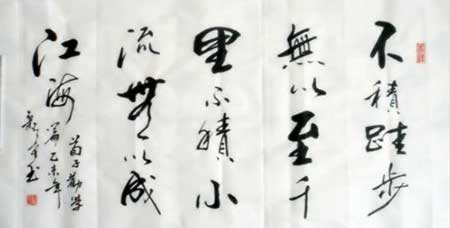 不積跬步
無以至千
里不積小
流無以成
江海
荀子勸學
篇乙未年